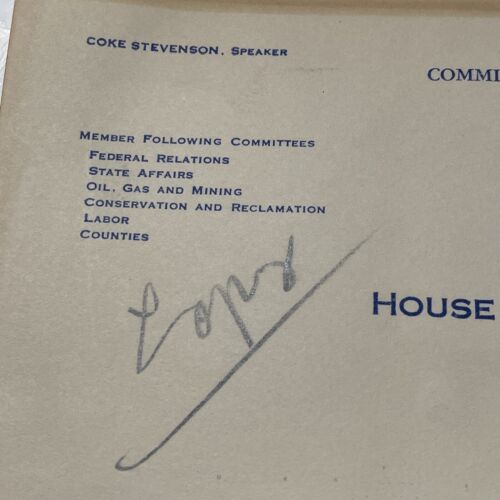 COKE STEVENSON, SPEAKER
COMMI
MEMBER FOLLOWING COMMITTEES
FEDERAL RELATIONS
STATE AFFAIRS
OIL, GAS AND MINING
CONSERVATION AND RECLAMATION
LABOR
COUNTIES
Copy
HOUSE